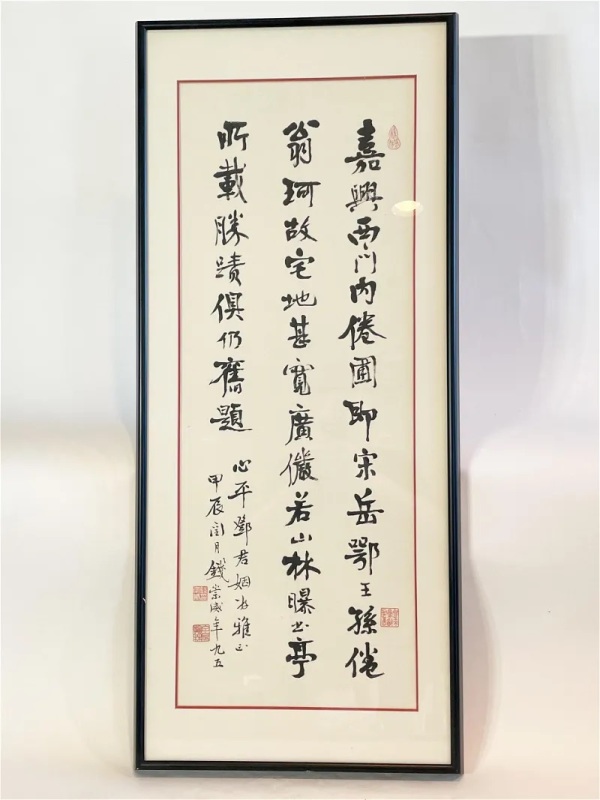 嘉興西門内倦圃即宋岳鄂王孫倦
翁珂故宅地甚寬廣儼若山林曝书亭
所載勝蹟俱仍舊題
心平鄧君姻 雅正
甲辰閏月錢崇威年九五